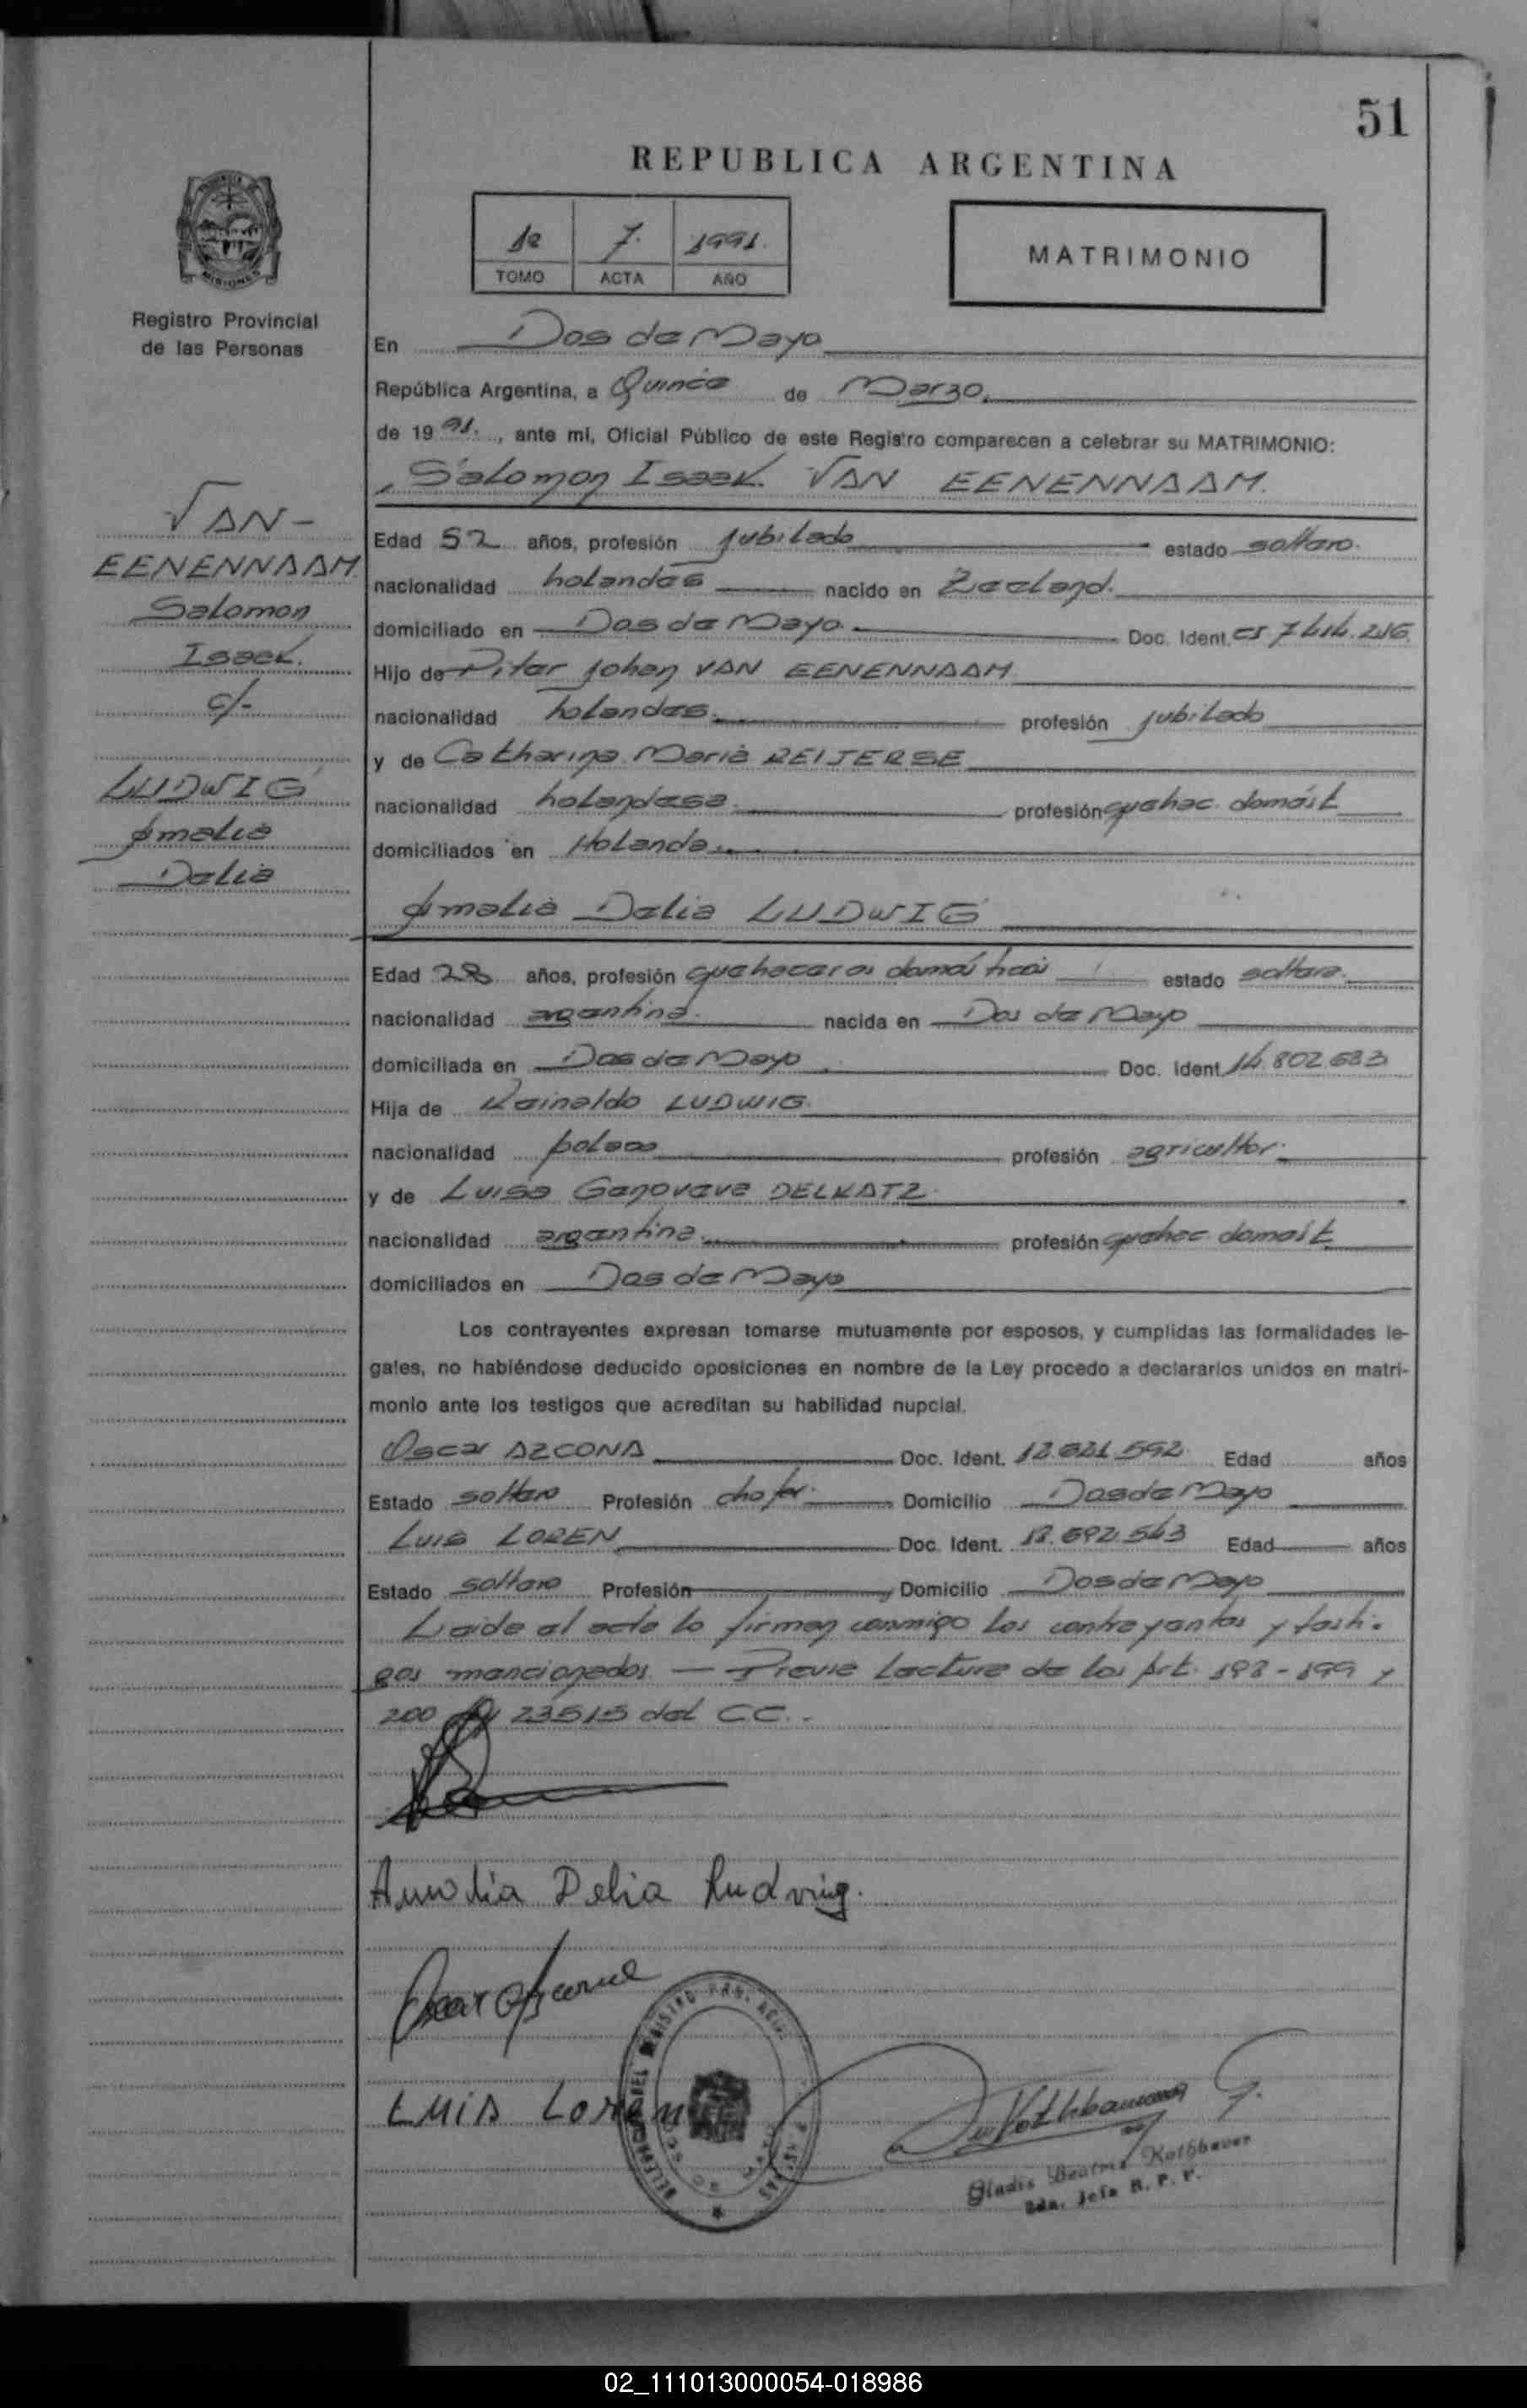 51
REPUBLICA ARGENTINA
1º 7. 1991.
TOMO ACTA AÑO
MATRIMONIO
MISIONES
Registro Provincial
de las Personas
En Dos de Mayo
República Argentina, a Quince de Marzo.
de 19 91., ante mí, Oficial Público de este Registro comparecen a celebrar su MATRIMONIO:
Salomon Isaek VAN EENENNAAM.
VAN-
EENENNAAM
Salomon
Isaek.
c/-
LUDWIG
Amalia
Delia
Edad 52 años, profesión jubilado estado soltero.
nacionalidad holandes nacido en Zeeland.
domiciliado en Dos de Mayo. Doc. Ident. CI
Hijo de Piter Johan VAN EENENNAAM
nacionalidad holandes. profesión jubilado
y de Catharina Maria REIJERSE
nacionalidad holandesa. profesión quehac. domést
domiciliados en Holanda.
Amalia Delia LUDWIG
Edad 28 años, profesión quehaceres domésticos estado soltera.
nacionalidad argentina. nacida en Dos de Mayo
domiciliada en Dos de Mayo Doc. Ident. 14.802.683
Hija de Reinaldo LUDWIG
nacionalidad polaco profesión agricultor.
y de Luisa Genoveve DELKATZ
nacionalidad argentina. profesión quehac. domést
domiciliados en Dos de Mayo
Los contrayentes expresan tomarse mutuamente por esposos, y cumplidas las formalidades le-
gales, no habiéndose deducido oposiciones en nombre de la Ley procedo a declararlos unidos en matri-
monio ante los testigos que acreditan su habilidad nupcial.
Oscar AZCONA Doc. Ident. Edad años
Estado soltero Profesión chofer. Domicilio Dos de Mayo
Luis LOREN Doc. Ident. 18.692.563 Edad años
Estado soltero Profesión Domicilio Dos de Mayo
Leida el acta lo firman conmigo los contrayentes y testi-
gos mencionados. — Previa lectura de los Art. 198-199 y
200 23515 del CC.-
Amalia Delia Ludwig.
Oscar Azcona
LUIS Loren
Gladis Beatriz Rothbauer
2da. Jefa R. P. P.
02_111013000054-018986